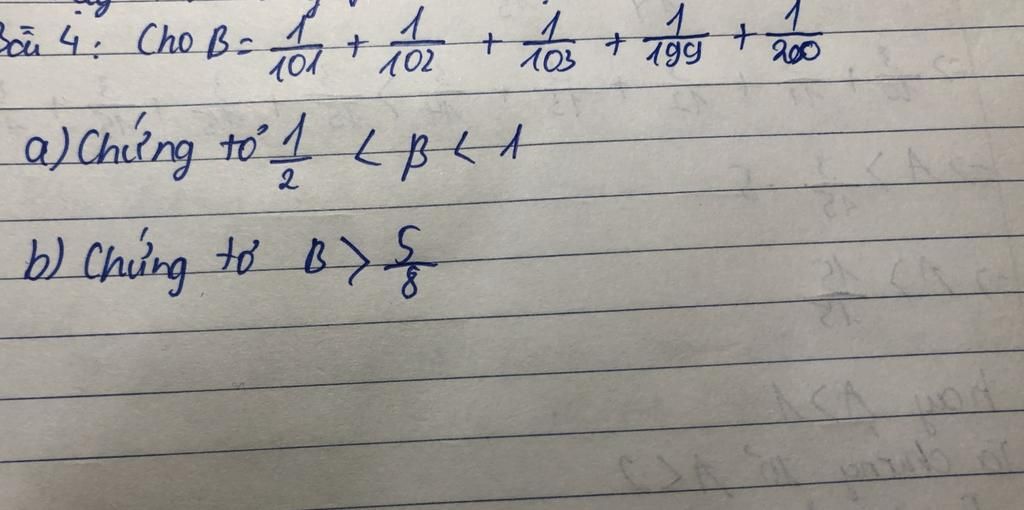 Bài 4: Cho B = 1/101 + 1/102 + 1/103 + 1/199 + 1/200
a) Chứng tỏ 1/2 < B < 1
b) Chứng tỏ B > 5/8